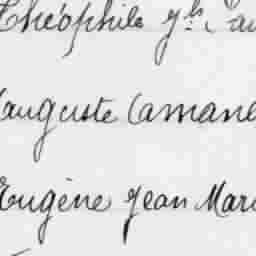 Théophile
auguste Camane
Eugène Jean Mari